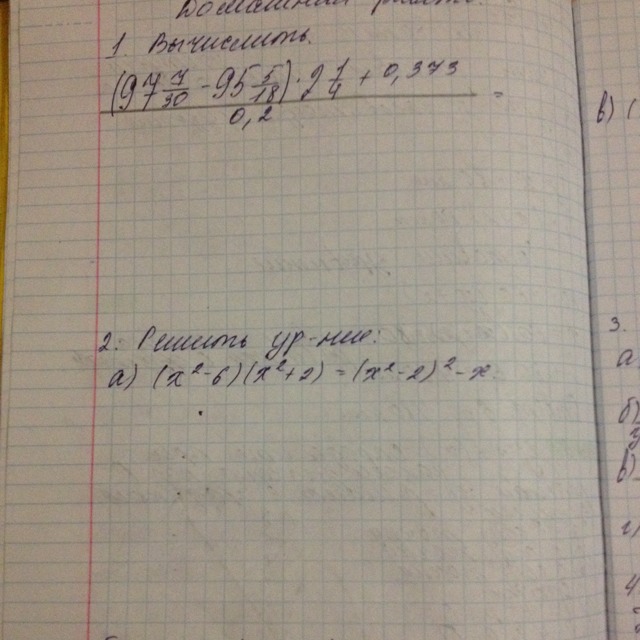 Домашняя работа.
1 Вычислить.
(97 7/30 - 95 5/18) · 2 1/4 + 0,373
0,2 =
2. Решить ур-ние:
а) (x²-6)(x²+2) = (x²-2)² - x
в) (
3.
а
б)
в)
г)
4